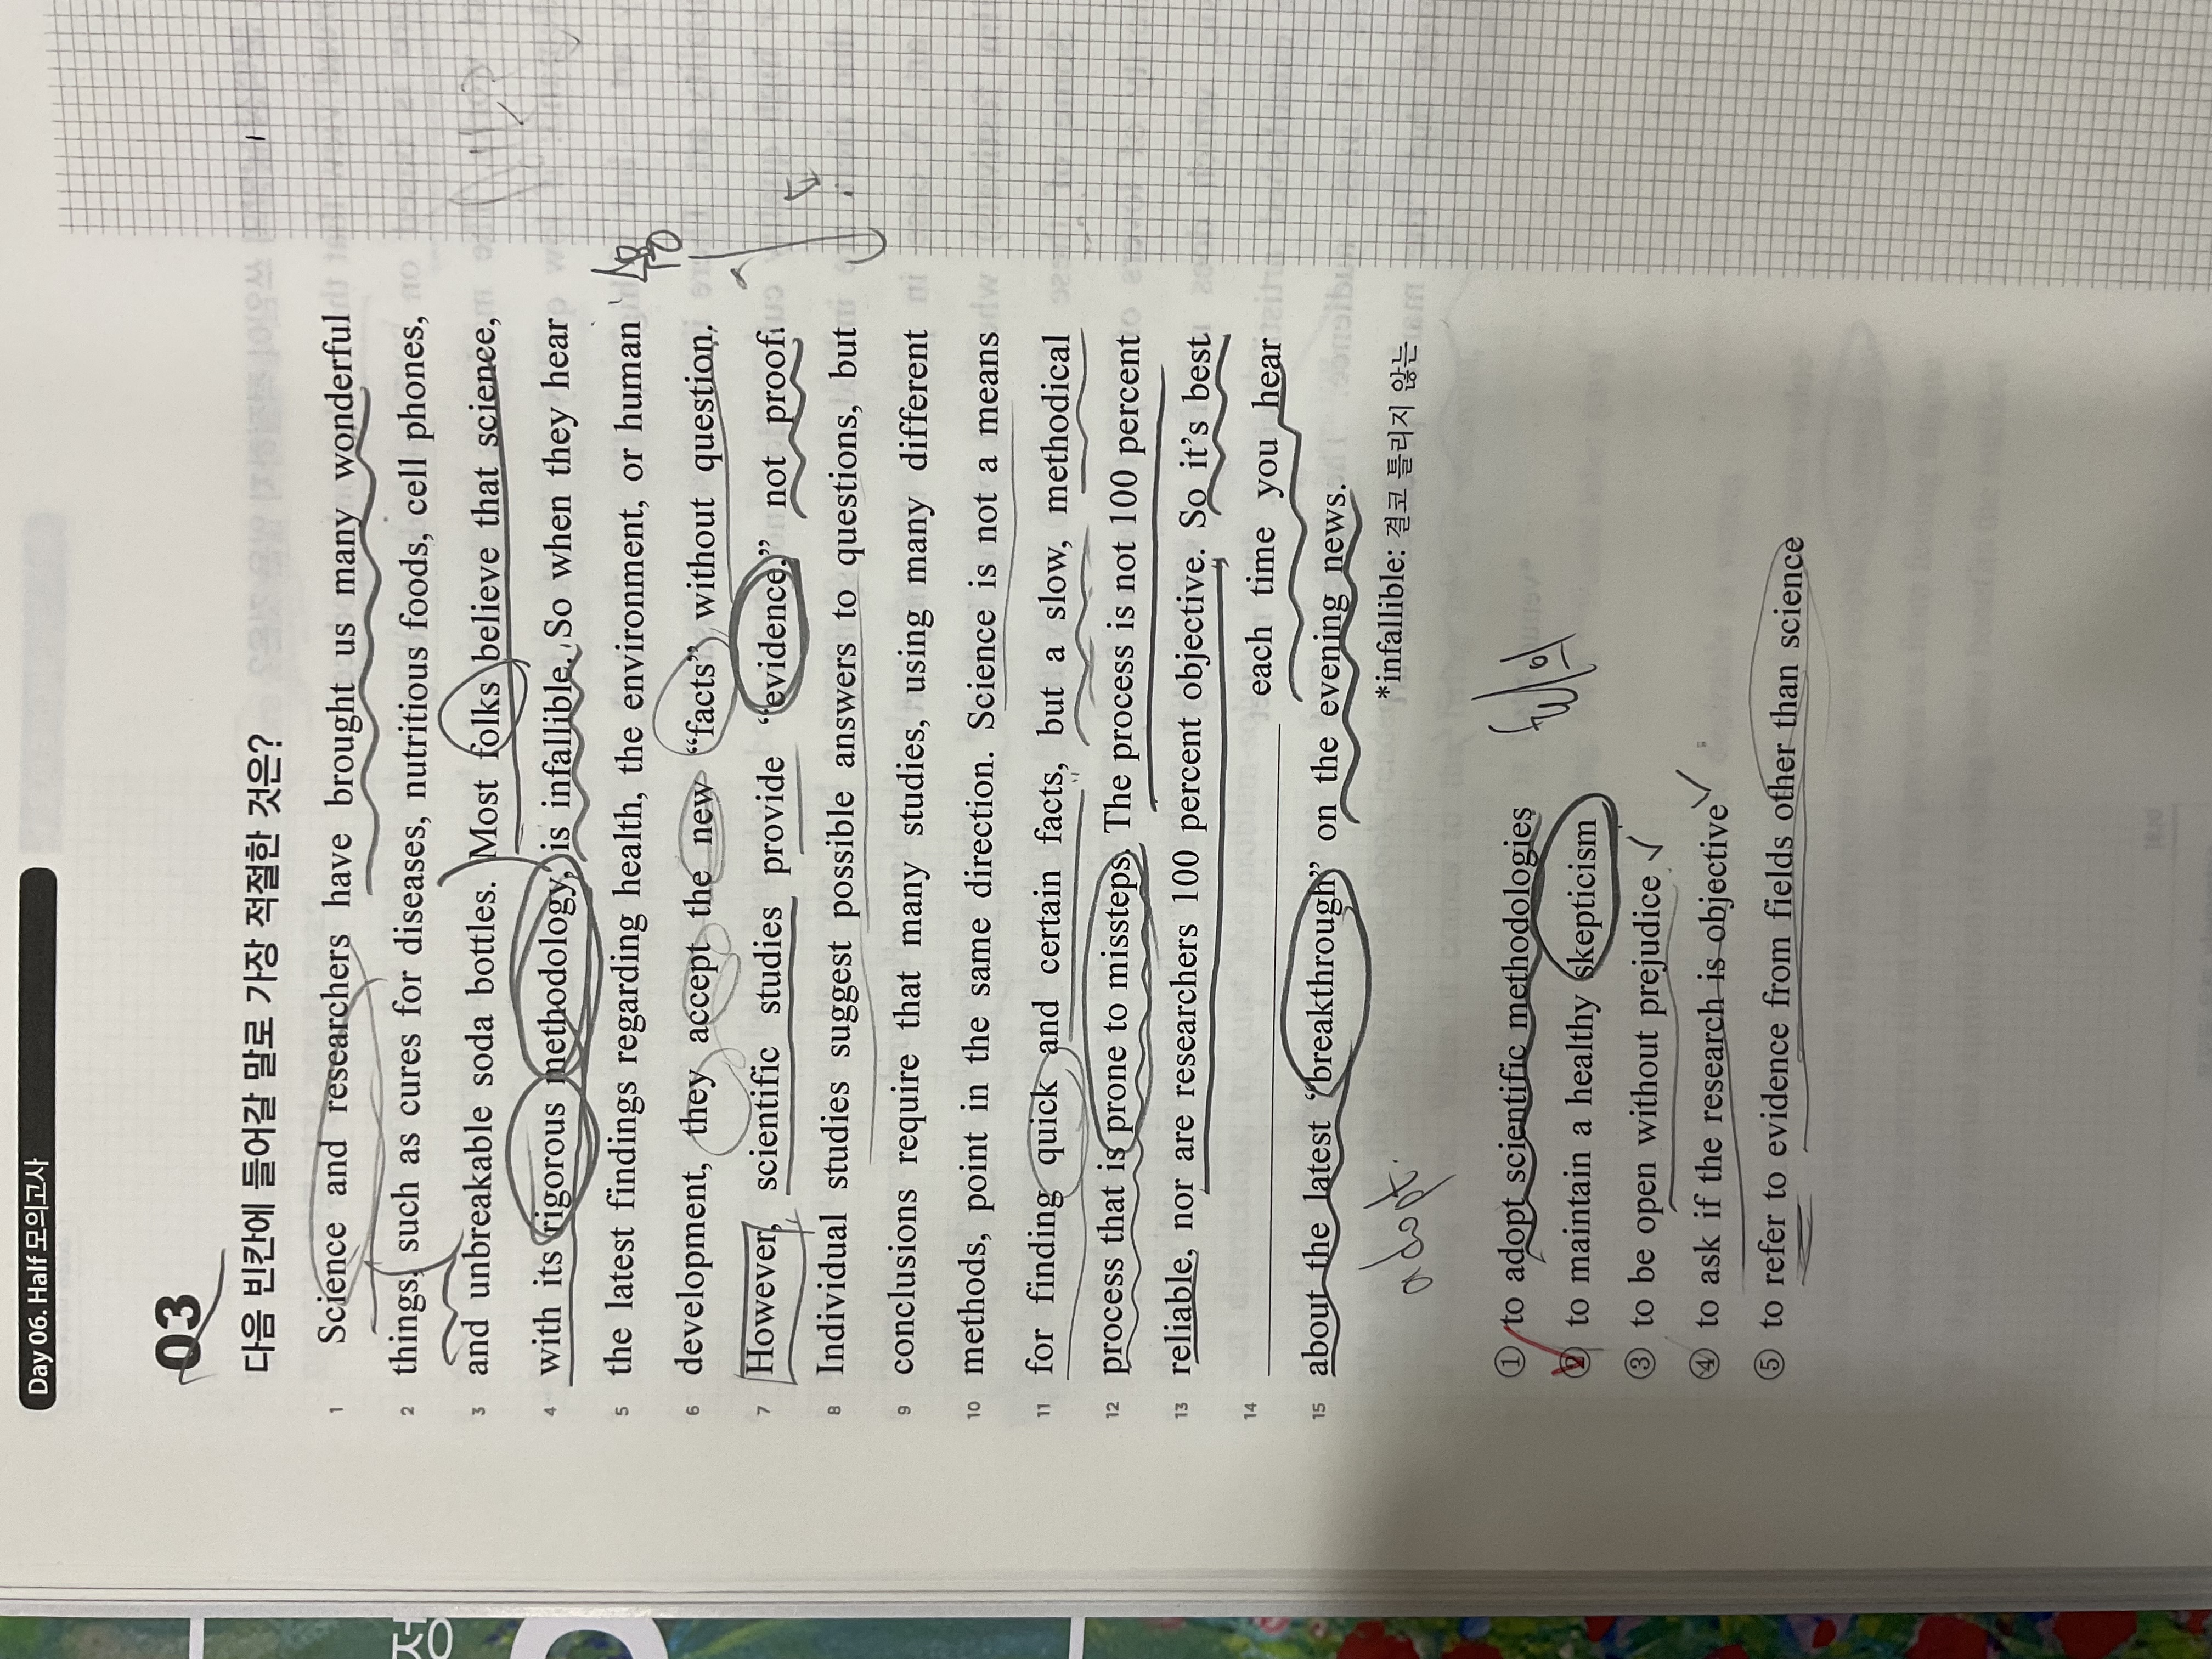 Day 06. Half 모의고사
03
다음 빈칸에 들어갈 말로 가장 적절한 것은?
1 Science and researchers have brought us many wonderful
2 things, such as cures for diseases, nutritious foods, cell phones,
3 and unbreakable soda bottles. Most folks believe that science,
4 with its rigorous methodology, is infallible. So when they hear
5 the latest findings regarding health, the environment, or human
6 development, they accept the new “facts” without question.
7 However, scientific studies provide “evidence,” not proof.
8 Individual studies suggest possible answers to questions, but
9 conclusions require that many studies, using many different
10 methods, point in the same direction. Science is not a means
11 for finding quick and certain facts, but a slow, methodical
12 process that is prone to missteps. The process is not 100 percent
13 reliable, nor are researchers 100 percent objective. So it’s best
14 ____________ each time you hear
15 about the latest “breakthrough” on the evening news.
*infallible: 결코 틀리지 않는
① to adopt scientific methodologies
② to maintain a healthy skepticism
③ to be open without prejudice
④ to ask if the research is objective
⑤ to refer to evidence from fields other than science